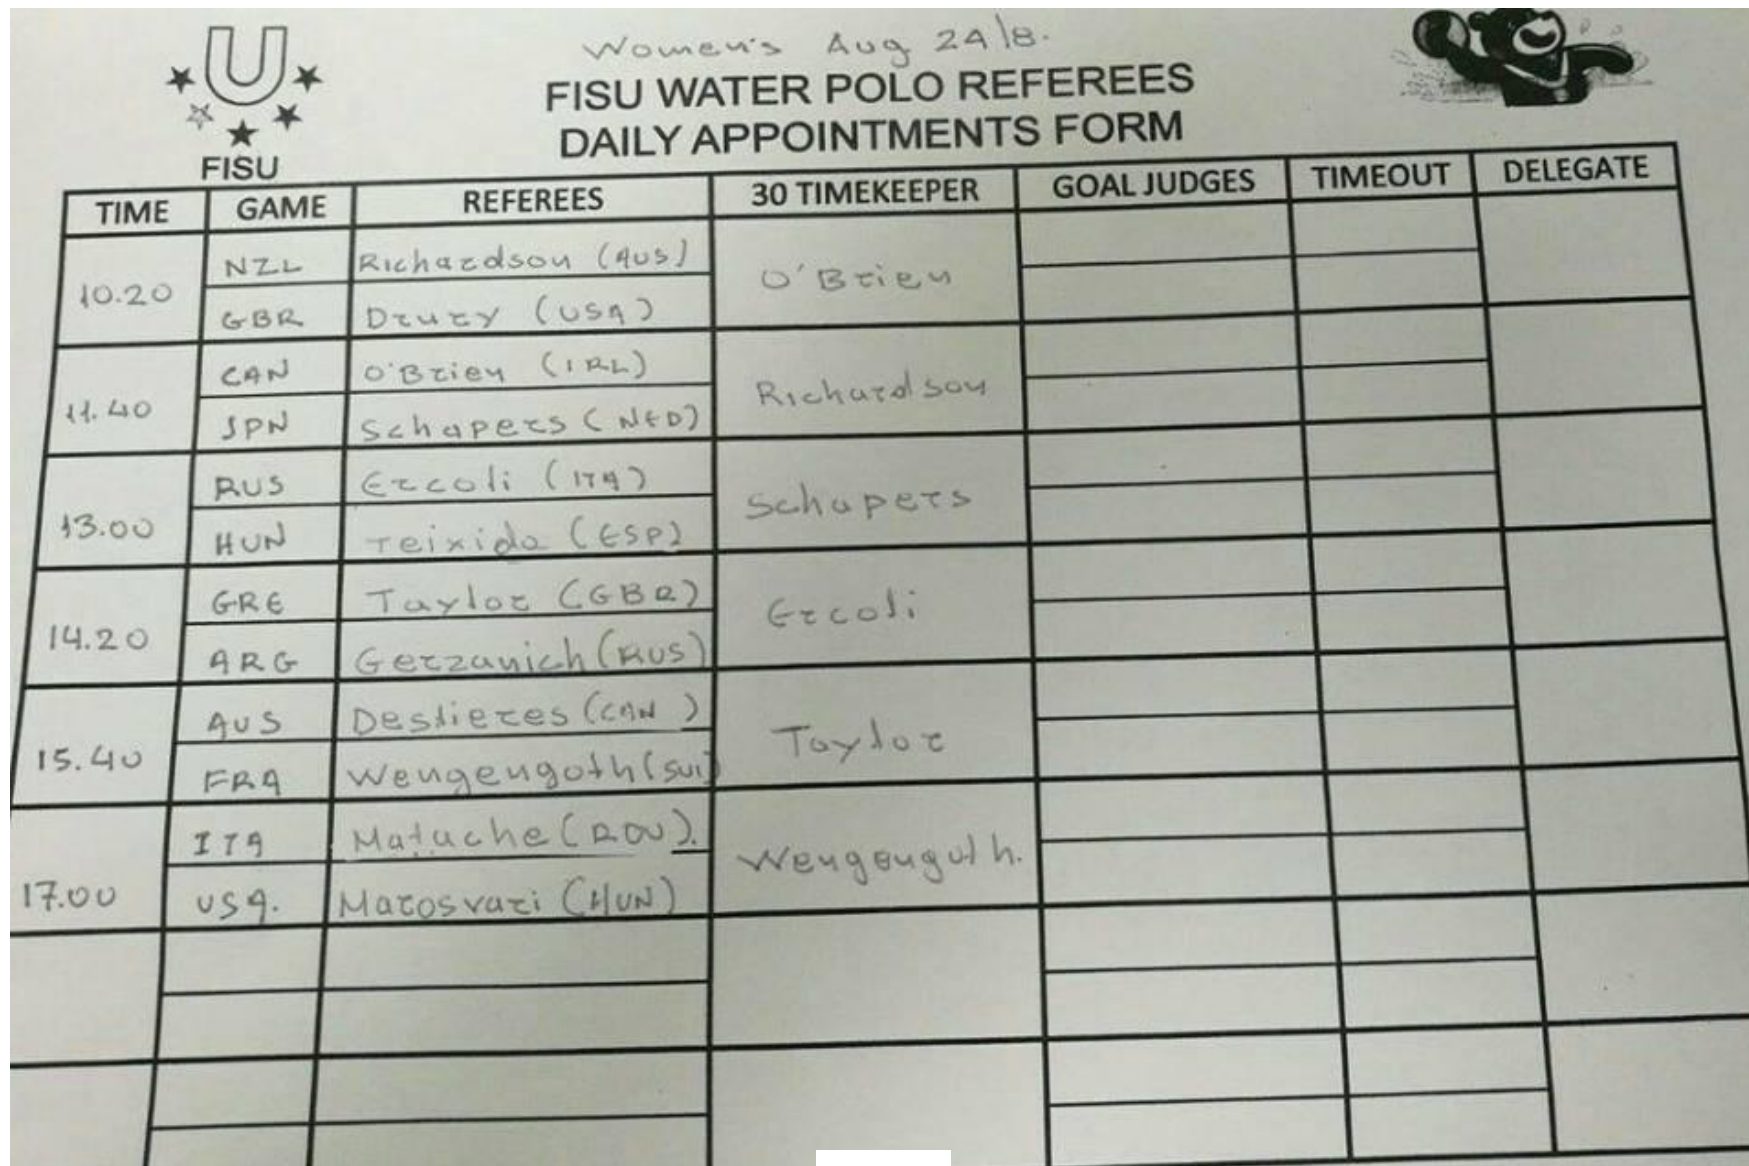 Women's Aug 24/8.
FISU WATER POLO REFEREES
DAILY APPOINTMENTS FORM
FISU
TIME GAME REFEREES 30 TIMEKEEPER GOAL JUDGES TIMEOUT DELEGATE
10.20 NZL Richardson (AUS) O'Brien
GBR Drury (USA)
11.40 CAN O'Brien (IRL) Richardson
JPN Schapers (NED)
13.00 RUS Ercoli (ITA) Schapers
HUN Teixido (ESP)
14.20 GRE Taylor (GBR) Ercoli
ARG Gerzanich (RUS)
15.40 AUS Deslieres (CAN) Taylor
FRA Wengengoth (SUI)
17.00 ITA Matache (ROU). Wengenguth.
USA. Marosvari (HUN)